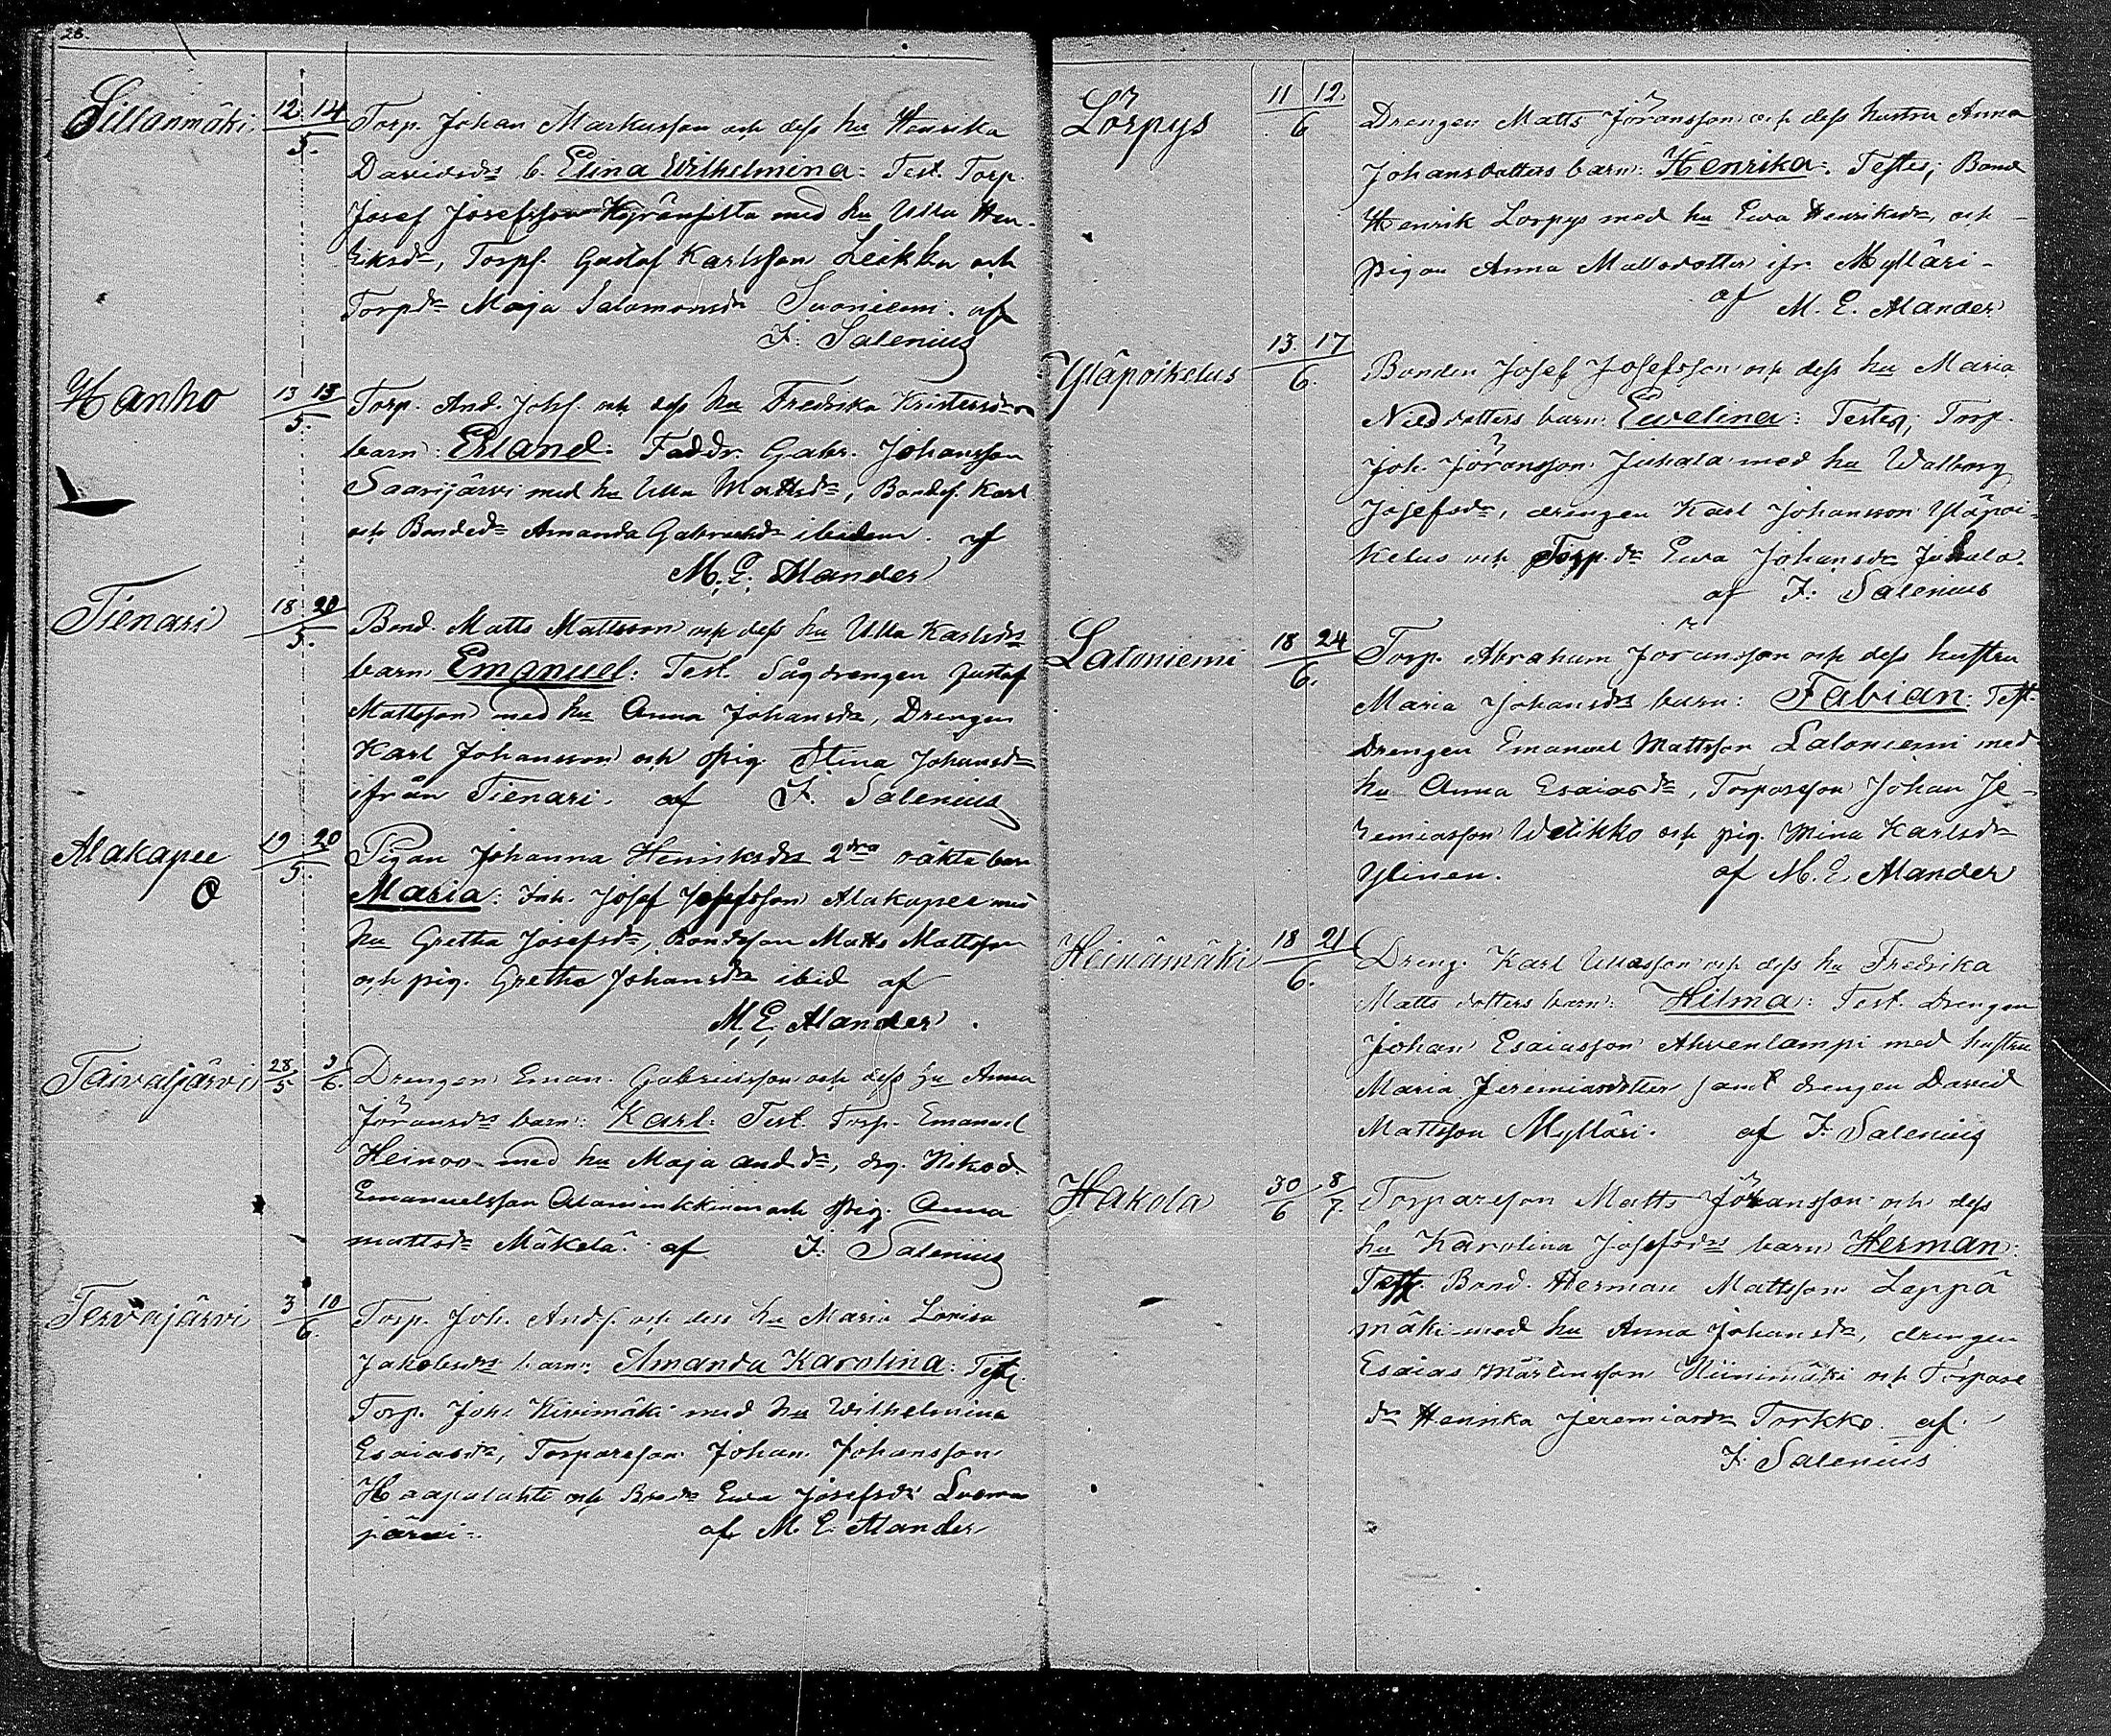 28.
Sillanmäki 12. 14 Torp. Johan Markusson och dess hu Henrika
5. Davidsdrs b. Elina Wilhelmina: Test. Torp.
Josef Josefsson med hu Ulla Hen-
riksdr, Torps. Gustaf Karlsson Leikka och
Torpdr Maja Salomonsdr Suoniemi. af
F. Salenius
Hanho 13 13 Torp. And. Johs. och dess hu Fredrika Kristersdrs
5. barn: Erland. Faddr. Gabr. Johansson
Saarijärvi med hu Ulla Mattsdr, Bondes. Karl
och Bondedr Amanda Gabrielsdr ibidem. af
M. E. Alander
Tienari 18 20 Bond. Matts Mattsson och dess hu Ulla Karlsdrs
5. barn Emanuel: Test. Sågdrengen Gustaf
Mattsson med hu Anna Johansdr, Drengen
Karl Johansson och pig. Stina Johansdr
ifrån Tienari. af F. Salenius
Alakapee 19 20 Pigan Johanna Henriksdrs 2dra oäkta barn
O 5. Maria: Inh. Josef Josefsson Alakapee med
hu Gretha Josefsdr, Bondeson Matts Mattsson
och pig. Gretha Johansdr ibid af
M. E. Alander.
Taivaljärvi 28/5 9/6. Drengen Eman. Gabrielsson och dess hu Anna
Jöransdrs barn: Karl: Test. Torp. Emanuel
Heinoo med hu Maja Anddr, drg. Nikod.
Emanuelsson och pig. Anna
Mattsdr Mäkelä. af F. Salenius
Tervajärvi 3 10 Torp. Joh. Ands. och dess hu Maria Lovisa
6. Jakobsdrs barn: Amanda Karolina: Test.
Torp. Joh. Kivimäki med hu Wilhelmina
Esaiasdr, Torpareson Johan Johansson
Haapalahti och Ewa Josefsdr
järvi. af M. E. Alander
Lörpys 11 12. Drengen Matts Jöransson och dess hustru Anna
6 Johansdotters barn: Henrika: Testes; Bond
Henrik Lörpys med hu Ewa Henriksdr, och
pigan Anna Mattsdotter ifr. Mylläri-
af M. E. Alander
Yläpoikelus 13. 17 Bonden Josef Josefsson och dess hu Maria
6. Nilsdotters barn: Ewelina: Testes; Torp.
Joh. Jöransson Juhala med hu Walborg
Josefsdr, drengen Karl Johansson Yläpoi-
kelus och Torp.dr Ewa Johansdr Juhala.
af F. Salenius
Latoniemi 18 24 Torp. Abraham Jöransson och dess hustru
6. Maria Johansdrs barn: Fabian: Test.
Drengen Emanuel Mattsson Latoniemi med
hu Anna Esaiasdr, Torpareson Johan Je-
remiasson och pig. Mina Karlsdr
Ylinen. af M. E. Alander
Heinämäki 18 21 Dreng. Karl Ullasson och dess hu Fredrika
6. Mattsdotters barn: Hilma: Test. Drengen
Johan Esaiasson Ahvenlampi med hustru
Maria Jeremiasdotter samt drengen David
Mattsson Mylläri. af F. Salenius
Hakola 30/6 8/7 Torpareson Matts Jöransson och dess
hu Karolina Josefsdrs barn Herman:
Test. Bond. Herman Mattsson Leppä
mäki med hu Anna Johansdr, drengen
Esaias Mårtensson Niinimäki och Torpare
dr Henrika Jeremiasdr Torkko. af
F. Salenius